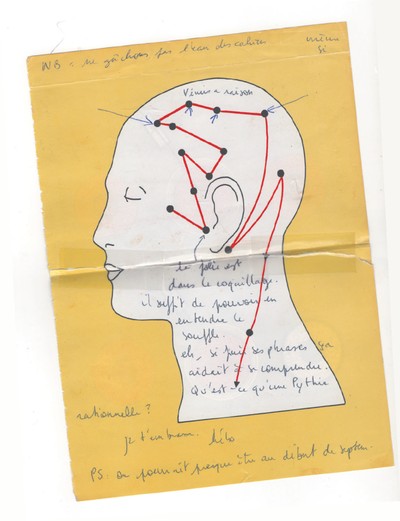 NB : ne gâchons pas l'eau des cahiers
même
si
Vénus a raison
la folie est
dans le coquillage.
il suffit de pouvoir en
entendre le
souffle.
si ses phrases ça
aidait à se comprendre.
Qu'est-ce qu'une Pythie
rationnelle ?
je t'embrasse.
PS : on pourrait au début de